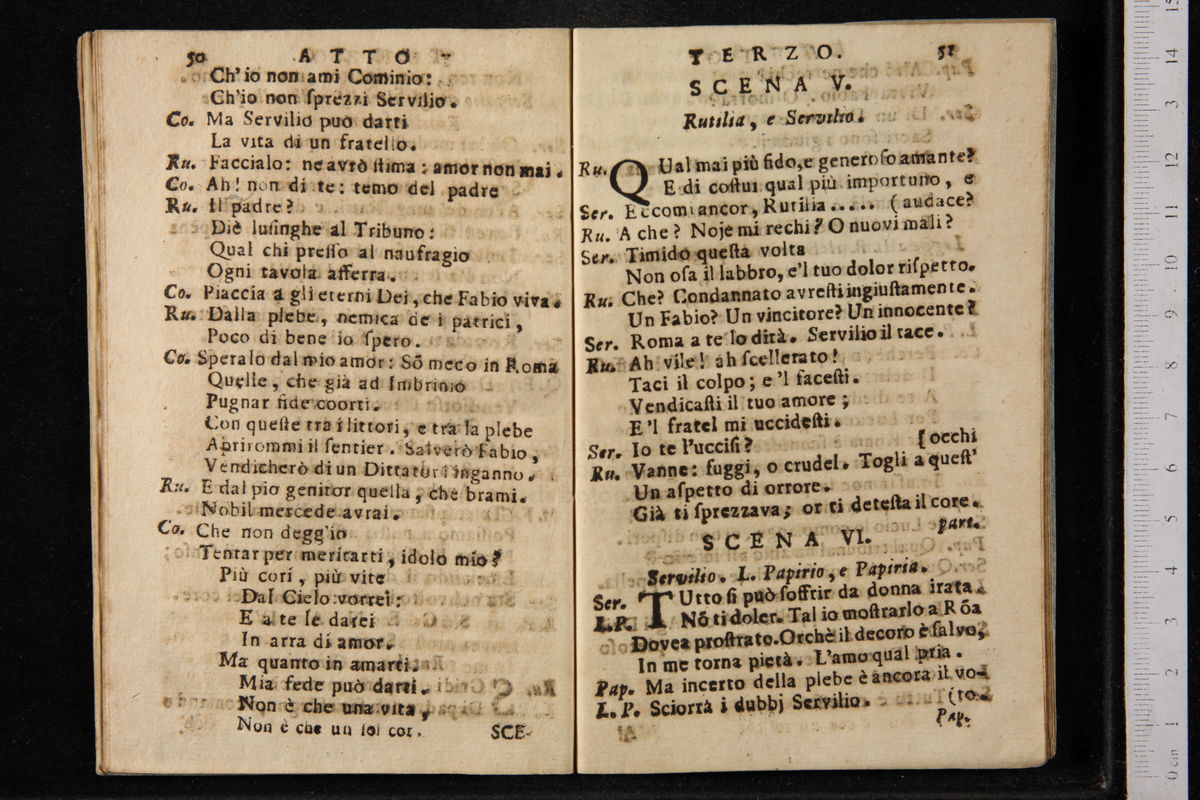 50 ATTO
Ch'io non ami Cominio:
Ch'io non ſprezzi Servilio.
Co. Ma Servilio può darti
La vita di un fratello.
Ru. Faccialo: ne avrò ſtima: amor non mai.
Co. Ah! non di te: temo del padre
Ru. Il padre?
Diè luſinghe al Tribuno:
Qual chi preſſo al naufragio
Ogni tavola afferra.
Co. Piaccia a gli eterni Dei, che Fabio viva.
Ru. Dalla plebe, nemica de i patrici,
Poco di bene io ſpero.
Co. Speralo dal mio amor: Sõ meco in Roma
Quelle, che già ad Imbrinio
Pugnar fide coorti.
Con queſte tra i littori, e tra la plebe
Aprirommi il ſentier. Salverò Fabio,
Vendicherò di un Dittator l'inganno.
Ru. E dal pio genitor quella, che brami.
Nobil mercede avrai.
Co. Che non degg'io
Tentar per meritarti, idolo mio?
Più cori, più vite
Dal Cielo vorrei:
E a te le darei
In arra di amor.
Ma quanto in amarti.
Mia fede può darti.
Non è che una vita,
Non è che un ſol cor.
SCE-
TERZO. 51
SCENA V.
Rutilia, e Servilio.
Ru. QUal mai più fido, e generoſo amante?
E di coſtui qual più importuno, e
(audace?
Ser. Eccomi ancor, Rutilia.....
Ru. A che? Noje mi rechi? O nuovi mali?
Ser. Timido queſta volta
Non oſa il labbro, e'l tuo dolor riſpetto.
Ru. Che? Condannato avreſti ingiuſtamente.
Un Fabio? Un vincitore? Un innocente?
Ser. Roma a te lo dirà. Servilio il tace.
Ru. Ah vile! ah ſcellerato!
Taci il colpo; e 'l faceſti.
Vendicaſti il tuo amore;
E'l fratel mi uccideſti.
Ser. Io te l'ucciſi?
[occhi
Ru. Vanne: fuggi, o crudel. Togli a queſt'
Un aſpetto di orrore.
Già ti ſprezzava; or ti deteſta il core.
part.
SCENA VI.
Servilio. L. Papirio, e Papiria.
Ser. TUtto ſi può ſoffrir da donna irata.
L.P. Nõ ti doler. Tal io moſtrarlo a Rõa
Dovea proſtrato. Orchè il decoro è ſalvo,
In me torna pietà. L'amo qual pria.
Pap. Ma incerto della plebe è ancora il vo-
(to.
L.P. Sciorrà i dubbj Servilio.
Pap.